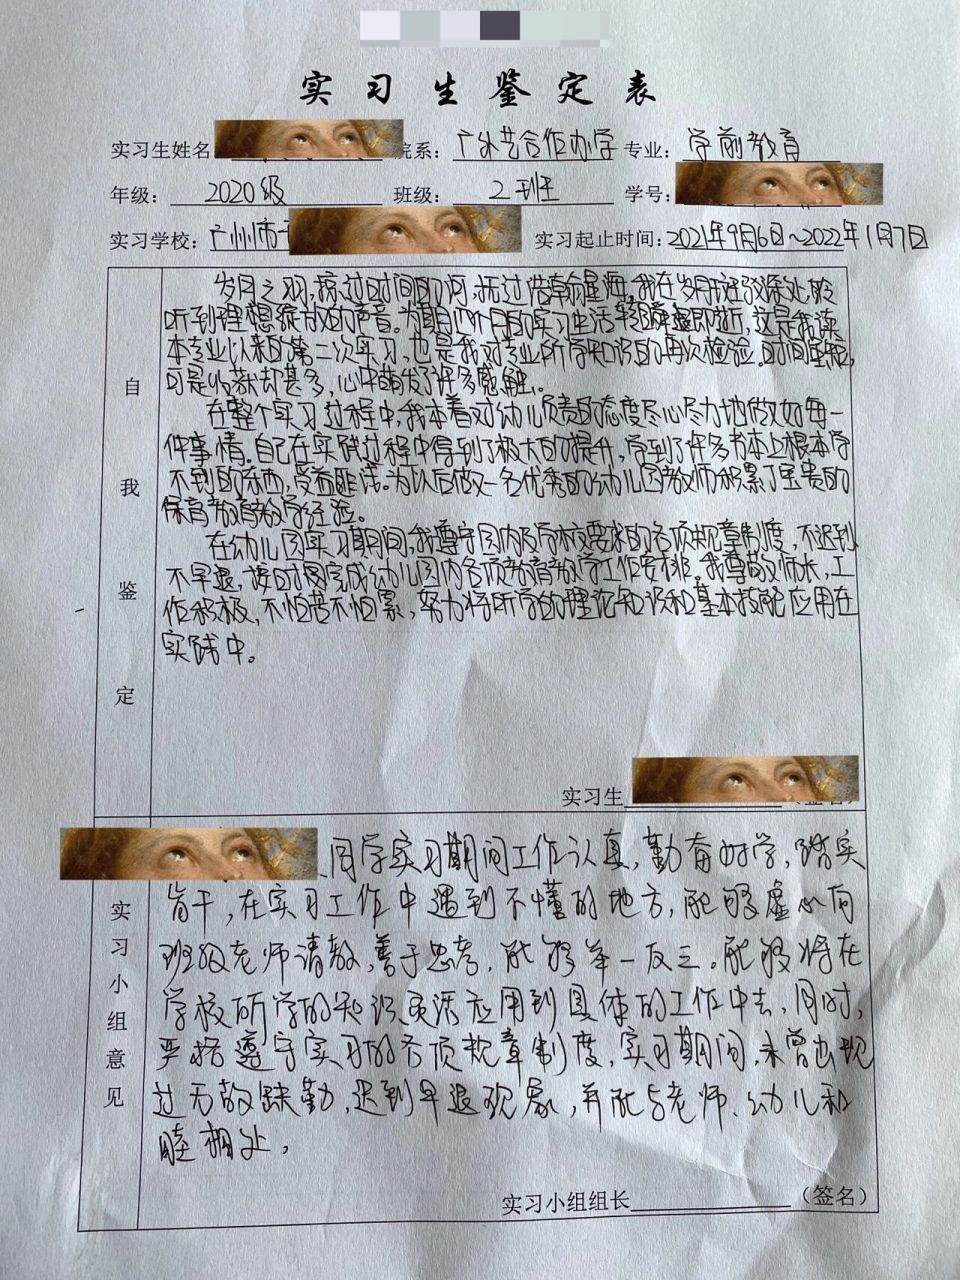 实习生鉴定表
实习生姓名 院系：广外艺合作办学 专业：学前教育
年级：2020级 班级：2班 学号：
实习学校：广州市 实习起止时间：2021年9月6日～2022年1月7日
自我鉴定
岁月之羽，掠过时间的河，抚过浩瀚星海，我在岁月斑驳深处，聆
听到理想绽放的声音。为期四个月的实习生活转瞬即逝，这是我读
本专业以来的第二次实习，也是我对专业所学知识的再次检验。时间虽短，
可是收获却甚多，心中萌发了许多感触。
在整个实习过程中，我本着对幼儿负责的态度尽心尽力地做好每一
件事情。自己在实践过程中得到了极大的提升，学到了许多书本上根本学
不到的东西，受益匪浅。为以后做一名优秀的幼儿园教师积累了宝贵的
保育教育教学经验。
在幼儿园实习期间，我遵守园内及学校要求的各项规章制度，不迟到
不早退，按时完成幼儿园内各项教育教学工作安排。我尊敬师长，工
作积极，不怕苦不怕累，努力将所学的理论知识和基本技能应用在
实践中。
实习生 （签名）
实习小组意见
同学实习期间工作认真，勤奋好学，踏实
肯干，在实习工作中遇到不懂的地方，能够虚心向
班级老师请教，善于思考，能够举一反三。能够将在
学校所学的知识灵活应用到具体的工作中去，同时，
严格遵守实习的各项规章制度，实习期间，未曾出现
过无故缺勤，迟到早退现象，并能与老师、幼儿和
睦相处。
实习小组组长 （签名）